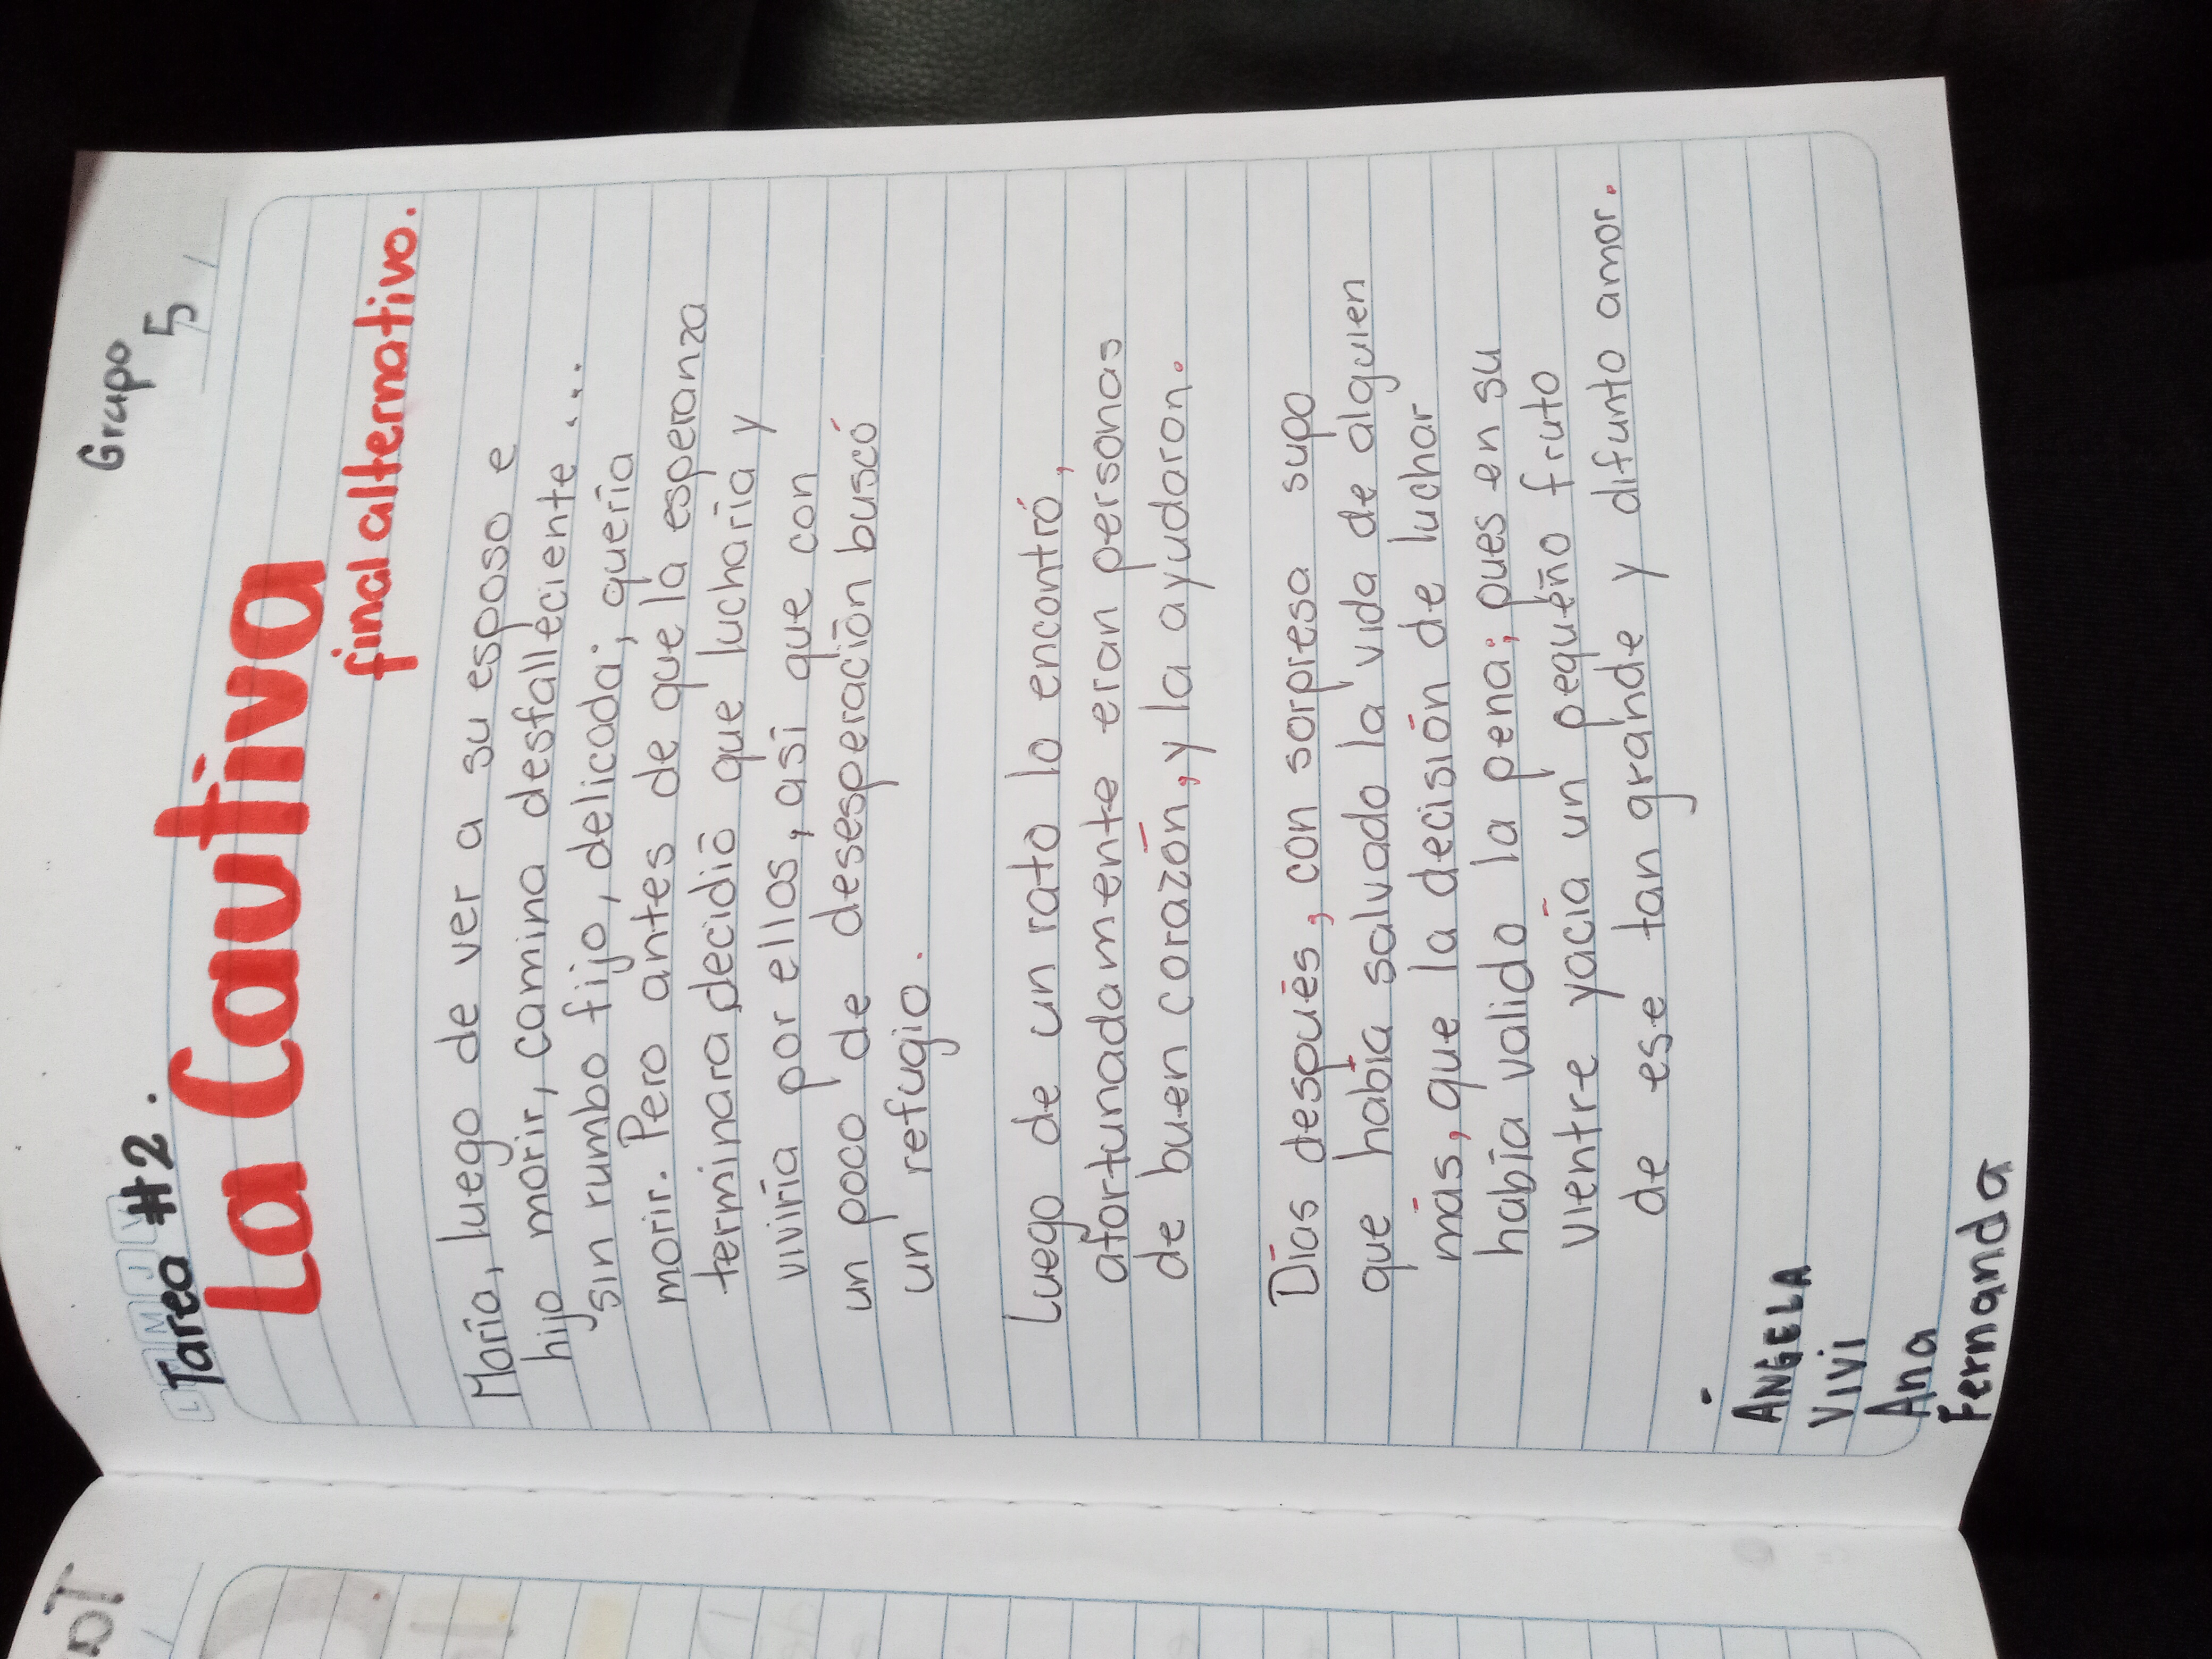 Tarea #2.
Grupo 5
La Cautiva
final alternativo.
María, luego de ver a su esposo e
hijo morir, camina desfalleciente...
sin rumbo fijo, delicada; quería
morir. Pero antes de que la esperanza
terminara, decidió que lucharía y
viviría por ellos, así que con
un poco de desesperación buscó
un refugio.
Luego de un rato lo encontró,
afortunadamente eran personas
de buen corazón, y la ayudaron.
Días después, con sorpresa supo
que había salvado la vida de alguien
más, que la decisión de luchar
había valido la pena; pues en su
vientre yacía un pequeño fruto
de ese tan grande y difunto amor.
ANGELA
VIVI
Ana
Fernanda